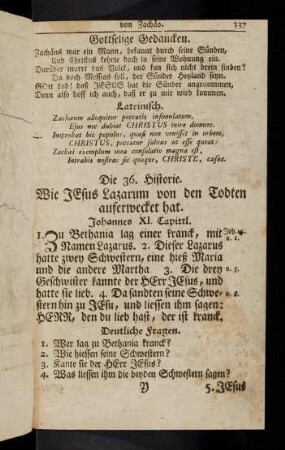 von Zachäo. 337
Gottselige Gedancken.
Zachäus war ein Mann, bekannt durch seine Sünden,
Und Christus kehrte doch in seine Wohnung ein.
Darüber murrt das Volck, und kan sich nicht drein finden?
Da doch Messias soll, der Sünder Heyland seyn.
GOtt Lob! daß JESUS hat die Sünder angenommen,
Denn also hoff ich auch, daß er zu mir wird kommen.
Lateinisch.
Zachæum alloquitur peccatis insimulatum,
Ejus nec dubitat CHRISTUS inire domum.
Improbat hic populus, quasi non venisset in orbem,
CHRISTUS, peccatur salvus ut esse queat:
Zachæi exemplum mea consolatio magna est,
Intrabis nostras sic quoque, CHRISTE, casas.
Die 36. Historie.
Wie JEsus Lazarum von den Todten
auferwecket hat.
Johannes XI. Capittl.
1. Zu Bethania lag einer kranck, mit
Namen Lazarus. 2. Dieser Lazarus
hatte zwey Schwestern, eine hieß Maria
und die andere Martha 3. Die drey v. 5.
Geschwister kannte der HErr JEsus, und
hatte sie lieb. 4. Da sandten seine Schwe-
stern hin zu JEsu, und liessen ihm sagen:
HERR, den du lieb hast, der ist kranck.
Deutliche Fragen.
1. Wer lag zu Bethania kranck?
2. Wie hiessen seine Schwestern?
3. Kante sie der HErr JEsus?
4. Was liessen ihm die beyden Schwestern sagen?
Y 5. JEsus